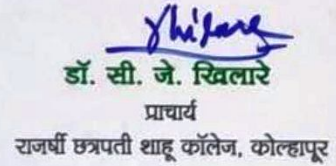 डॉ. सी. जे. खिलारे
प्राचार्य
राजर्षी छत्रपती शाहू कॉलेज, कोल्हापूर